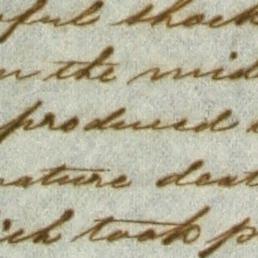 ful shock
the mid
produced
ature deat
ich took p